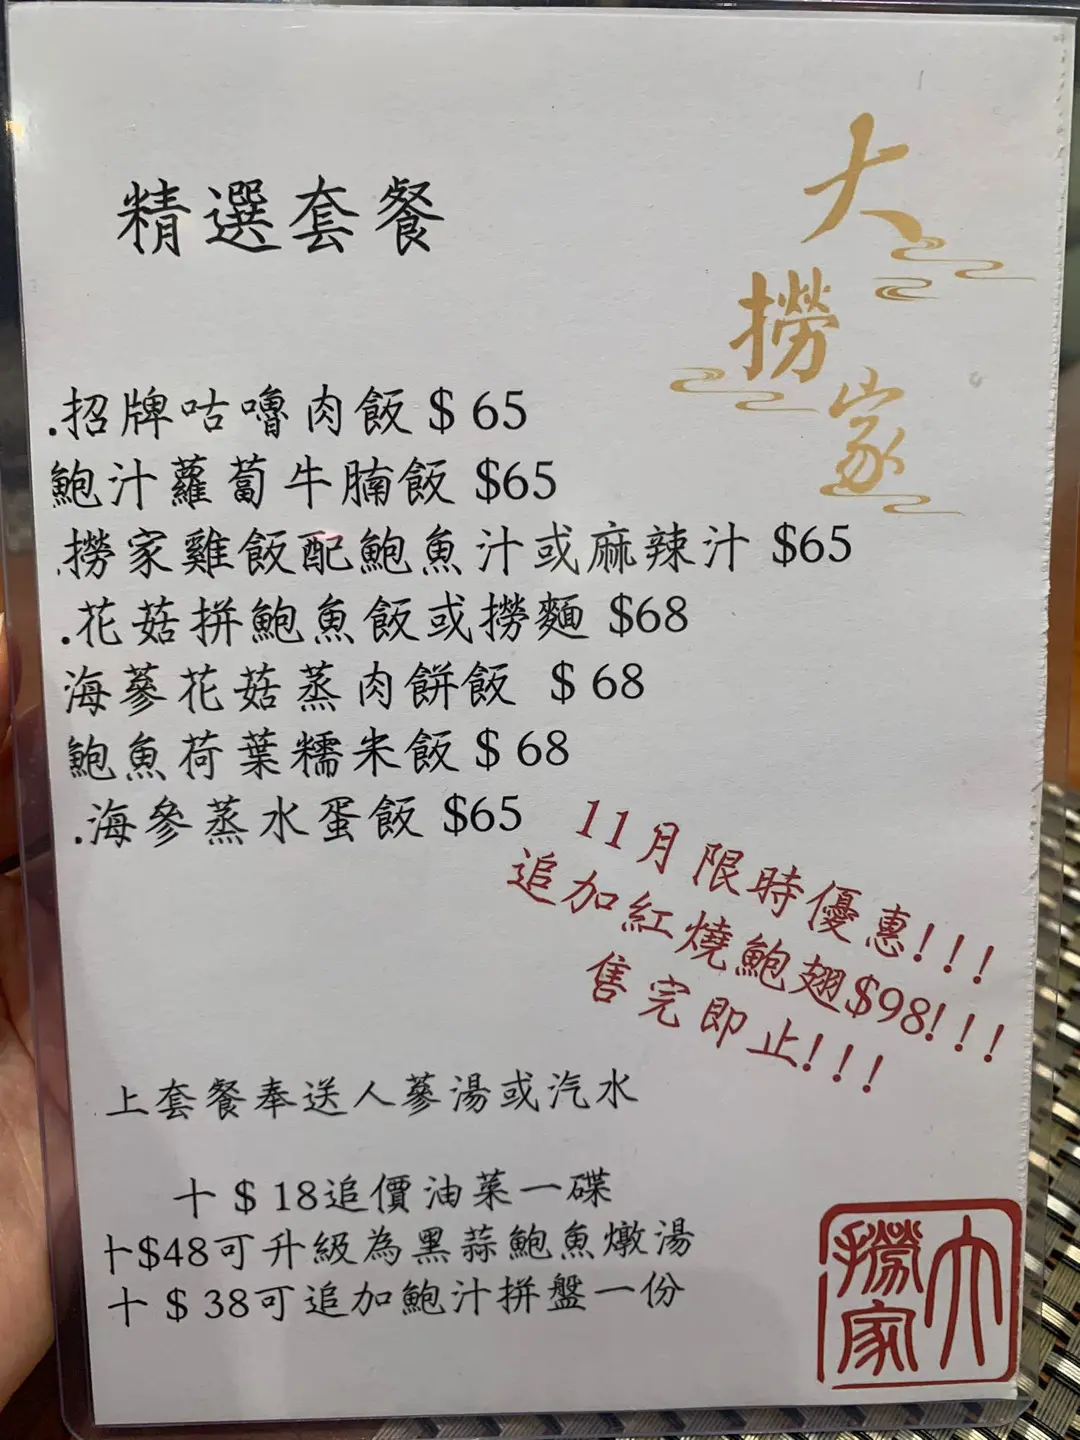 大撈家
精選套餐
.招牌咕嚕肉飯 $ 65
鮑汁蘿蔔牛腩飯 $65
.撈家雞飯配鮑魚汁或麻辣汁 $65
.花菇拼鮑魚飯或撈麵 $68
海蔘花菇蒸肉餅飯 $ 68
鮑魚荷葉糯米飯 $ 68
.海參蒸水蛋飯 $65
11月限時優惠!!!
追加紅燒鮑翅$98!!!
售完即止!!!
上套餐奉送人蔘湯或汽水
十 $ 18追價油菜一碟
十$48可升級為黑蒜鮑魚燉湯
十 $ 38可追加鮑汁拼盤一份
大撈家